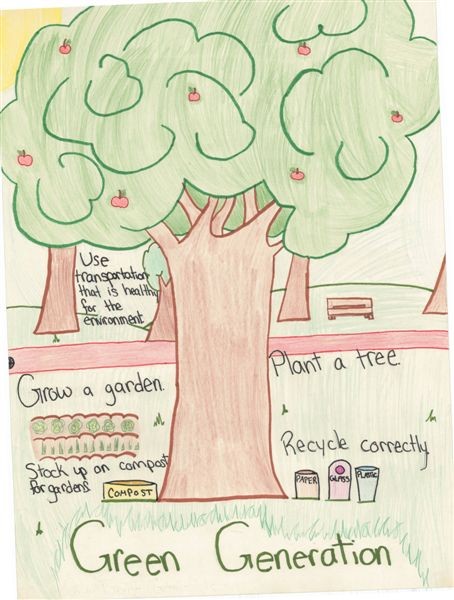 Use
transportation
that is healthy
for the
environment
Plant a tree.
Grow a garden.
Recycle correctly
Stock up on compost
for gardens
COMPOST
PAPER
GLASS
PLASTIC
Green Generation